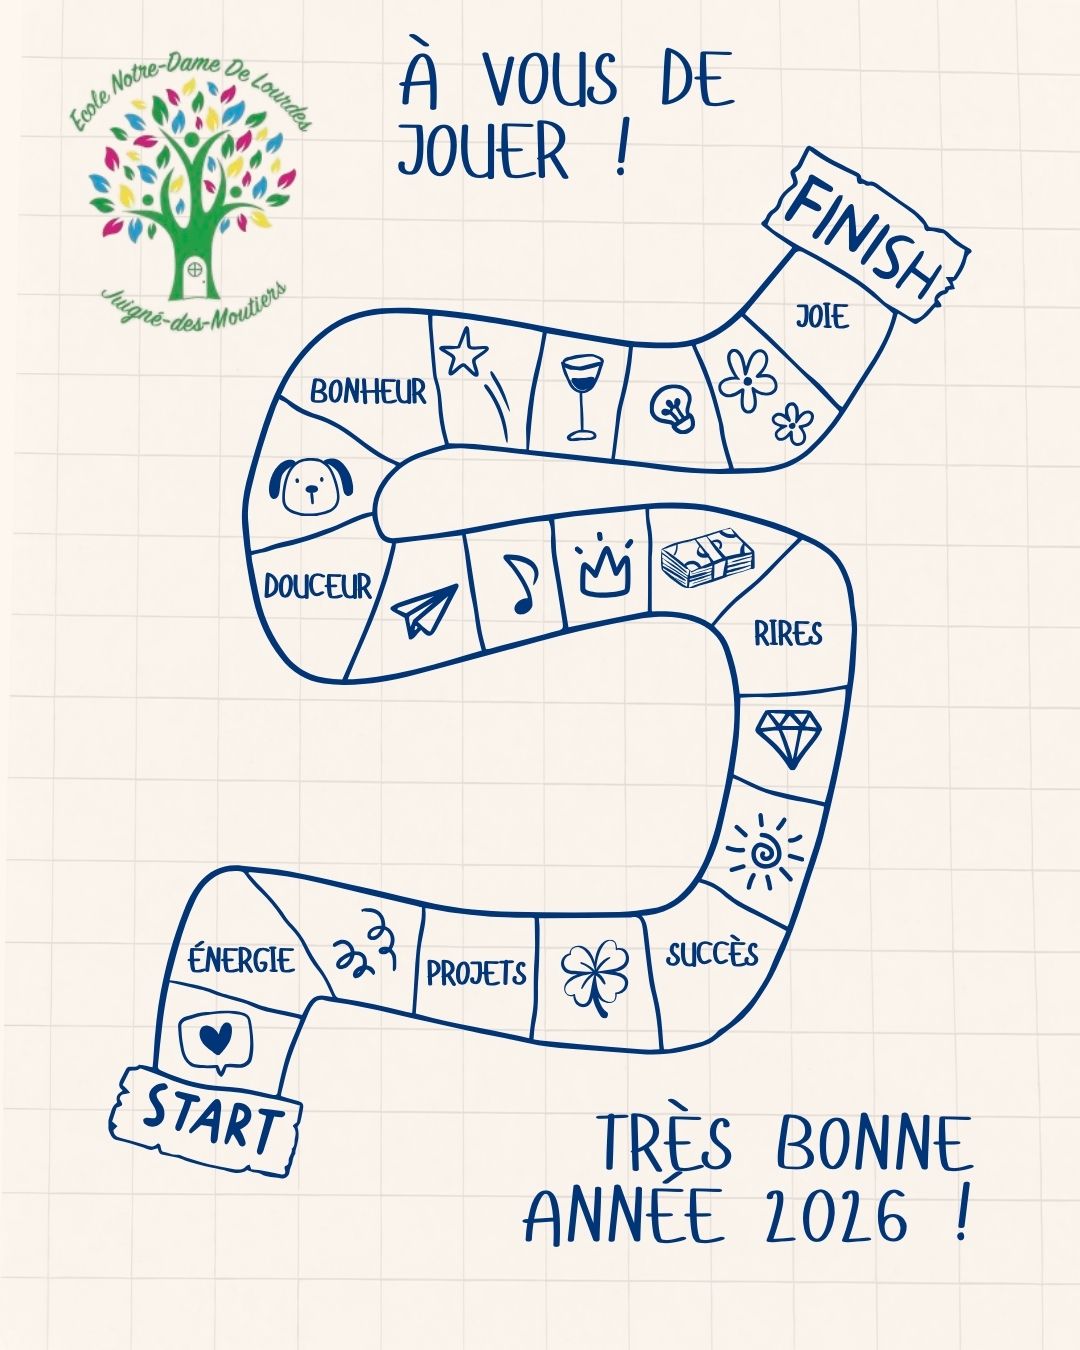 École Notre-Dame De Lourdes
Juigné-des-Moutiers
À VOUS DE
JOUER !
FINISH
JOIE
BONHEUR
DOUCEUR
RIRES
SUCCÈS
PROJETS
ÉNERGIE
START
TRÈS BONNE
ANNÉE 2026 !